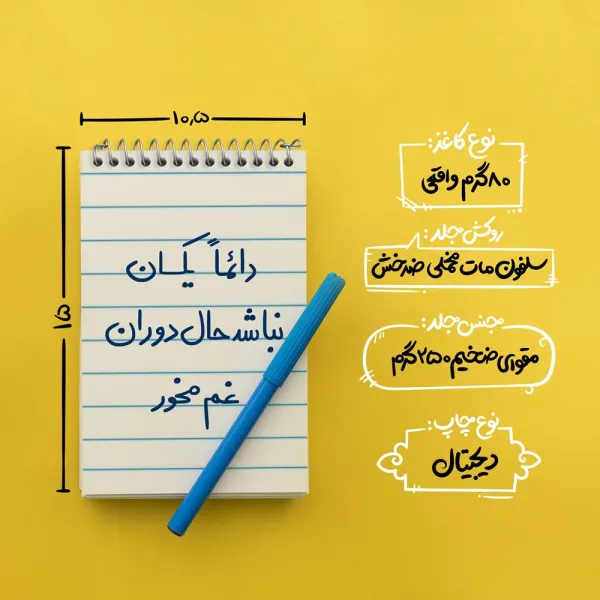 ۱۰,۵
۱۵
دائماً یکسان
نباشد حال دوران
غم مخور
نوع کاغذ:
۸۰ گرم واقعی
روکش مجلد:
سلفون مات مخملی ضدخش
جنس مجلد:
مقوای ضخیم ۲۵۰ گرم
نوع چاپ:
دیجیتال